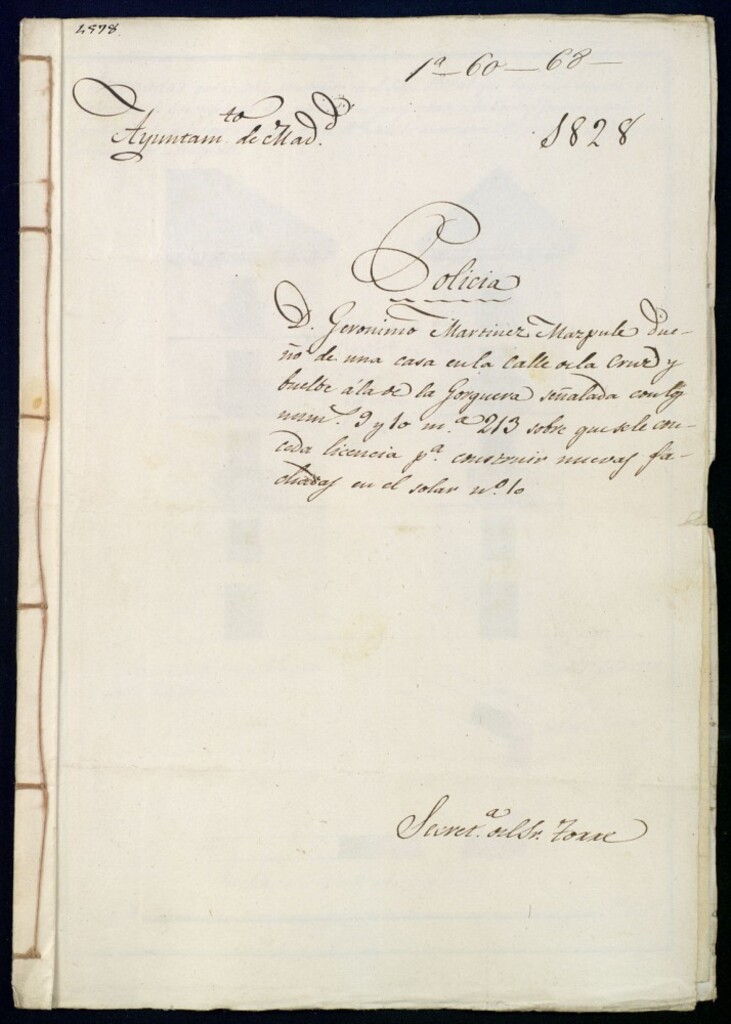 1,578.
1ª-60-68-
Ayuntam.to de Mad.d
1828
Policia
D. Geronimo Martinez Mazpule Due-
ño de una casa en la Calle de la Cruz y
buelbe á la de la Gorguera señalada con los
num.s 9 y 10 m.ª 213 sobre que se le con-
ceda licencia p.ª construir nuevas fa-
chadas en el solar nº. 10
Secret.ª del Sr. Torre